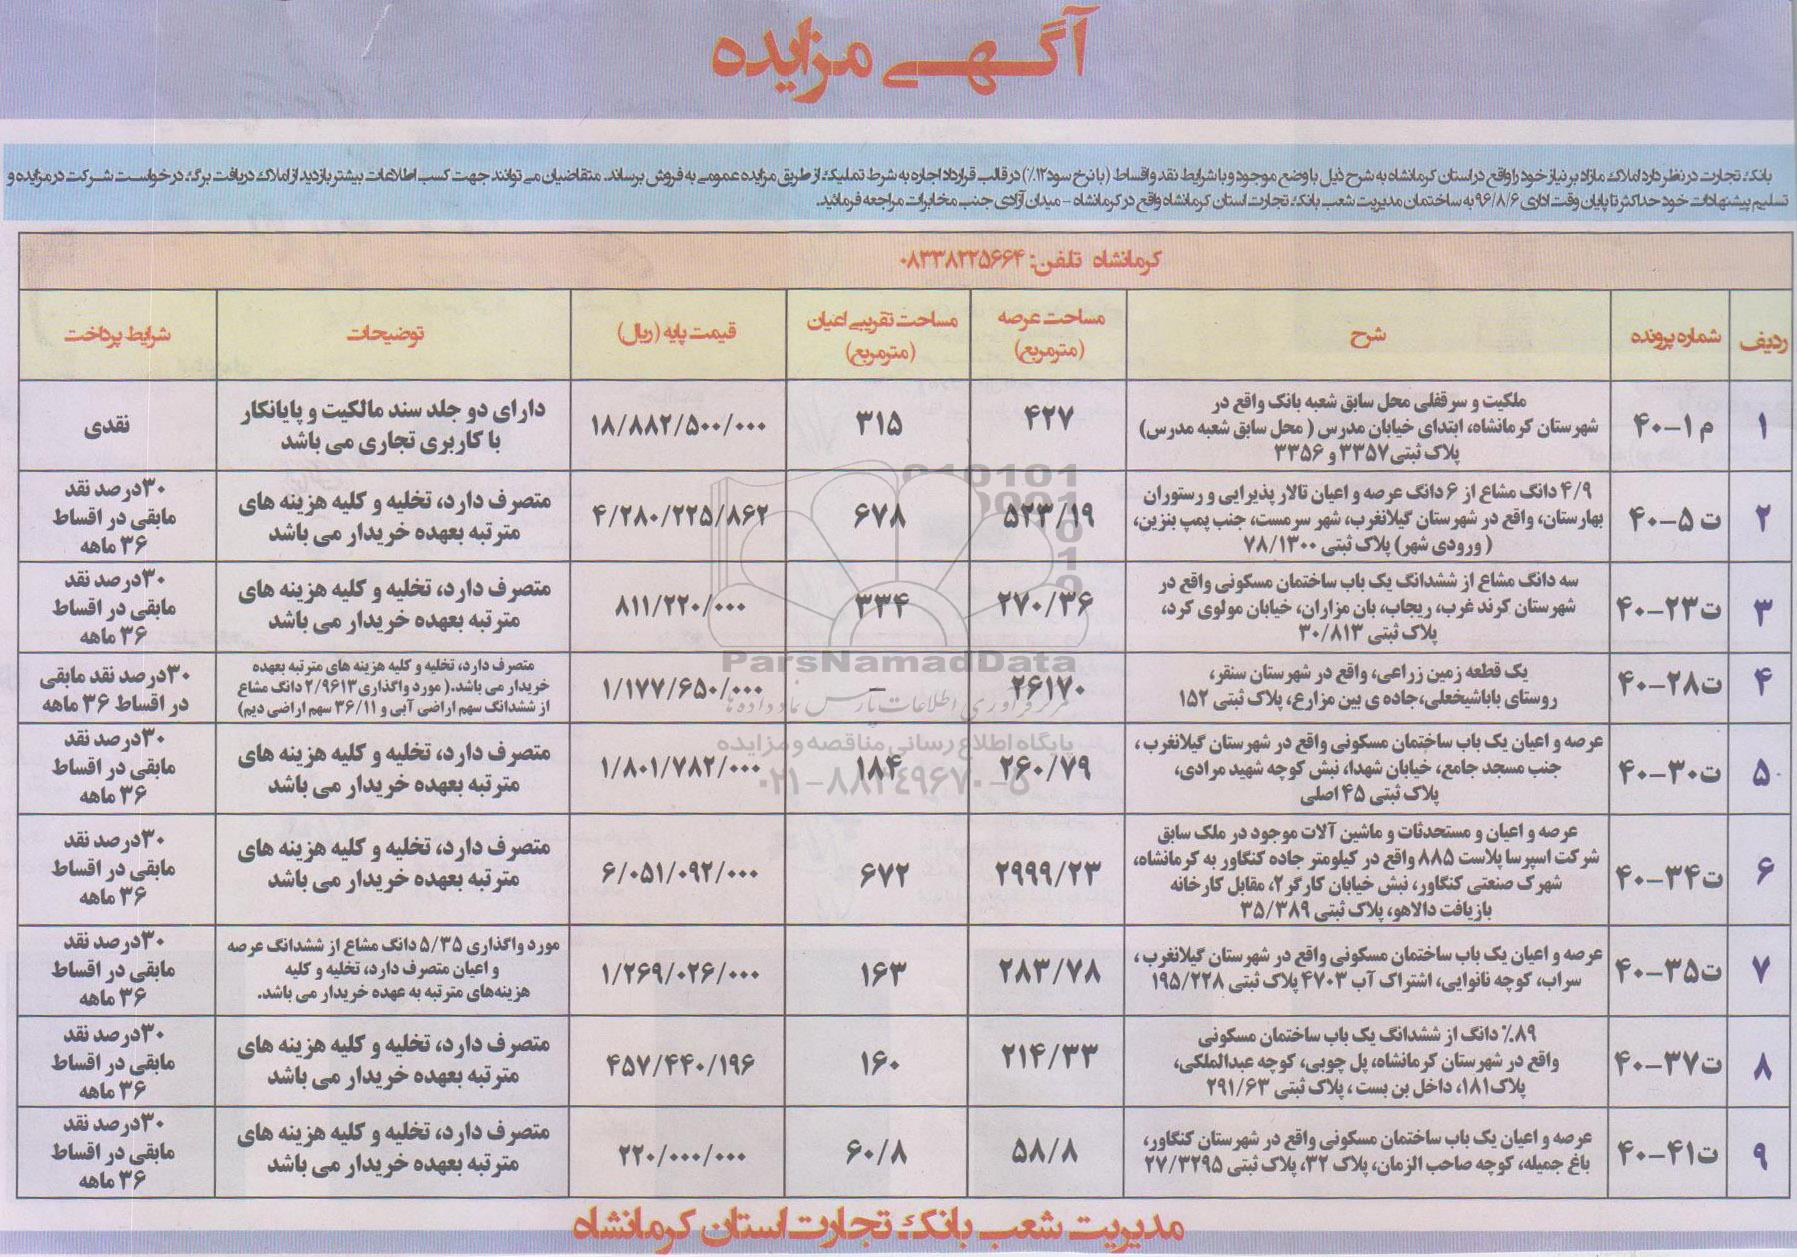 آگهی مزایده
بانک تجارت در نظر دارد املاک مازاد بر نیاز خود را واقع در استان کرمانشاه به شرح ذیل با وضع موجود و با شرایط نقد و اقساط (با نرخ سود۱۲٪) در قالب قرارداد اجاره به شرط تملیک از طریق مزایده عمومی به فروش برساند. متقاضیان می توانند جهت کسب اطلاعات بیشتر بازدید از املاک دریافت برگ درخواست شرکت در مزایده و
تسلیم پیشنهادات خود حداکثر تا پایان وقت اداری ۹۶/۸/۶ به ساختمان مدیریت شعب بانک تجارت استان کرمانشاه واقع در کرمانشاه - میدان آزادی جنب مخابرات مراجعه فرمائید.
کرمانشاه تلفن: ۰۸۳۳۸۲۲۵۶۶۴
ردیف
شماره پرونده
شرح
مساحت عرصه
(مترمربع)
مساحت تقریبی اعیان
(مترمربع)
قیمت پایه (ریال)
توضیحات
شرایط پرداخت
۱
م ۱-۴۰
ملکیت و سرقفلی محل سابق شعبه بانک واقع در
شهرستان کرمانشاه، ابتدای خیابان مدرس ( محل سابق شعبه مدرس)
پلاک ثبتی۳۳۵۷ و ۳۳۵۶
۴۲۷
۳۱۵
۱۸/۸۸۲/۵۰۰/۰۰۰
دارای دو جلد سند مالکیت و پایانکار
با کاربری تجاری می باشد
نقدی
۲
ت ۵-۴۰
۴/۹ دانگ مشاع از ۶ دانگ عرصه و اعیان تالار پذیرایی و رستوران
بهارستان، واقع در شهرستان گیلانغرب، شهر سرمست، جنب پمپ بنزین،
( ورودی شهر) پلاک ثبتی ۷۸/۱۳۰۰
۵۲۳/۱۹
۶۷۸
۴/۲۸۰/۲۲۵/۸۶۲
متصرف دارد، تخلیه و کلیه هزینه های
مترتبه بعهده خریدار می باشد
۳۰درصد نقد
مابقی در اقساط
۳۶ ماهه
۳
ت۲۳-۴۰
سه دانگ مشاع از ششدانگ یک باب ساختمان مسکونی واقع در
شهرستان کرند غرب، ریجاب، بان مزاران، خیابان مولوی کرد،
پلاک ثبتی ۳۰/۸۱۳
۲۷۰/۳۶
۳۳۴
۸۱۱/۲۲۰/۰۰۰
متصرف دارد، تخلیه و کلیه هزینه های
مترتبه بعهده خریدار می باشد
۳۰درصد نقد
مابقی در اقساط
۳۶ ماهه
۴
ت۲۸-۴۰
یک قطعه زمین زراعی، واقع در شهرستان سنقر،
روستای باباشیخعلی،جاده ی بین مزارع، پلاک ثبتی ۱۵۲
۲۶۱۷۰
-
۱/۱۷۷/۶۵۰/۰۰۰
متصرف دارد، تخلیه و کلیه هزینه های مترتبه بعهده
خریدار می باشد.( مورد واگذاری۲/۹۶۱۳ دانگ مشاع
از ششدانگ سهم اراضی آبی و ۳۶/۱۱ سهم اراضی دیم)
۳۰درصد نقد مابقی
در اقساط ۳۶ ماهه
۵
ت۳۰-۴۰
عرصه و اعیان یک باب ساختمان مسکونی واقع در شهرستان گیلانغرب ،
جنب مسجد جامع، خیابان شهدا، نبش کوچه شهید مرادی،
پلاک ثبتی ۴۵ اصلی
۲۶۰/۷۹
۱۸۴
۱/۸۰۱/۷۸۲/۰۰۰
متصرف دارد، تخلیه و کلیه هزینه های
مترتبه بعهده خریدار می باشد
۳۰درصد نقد
مابقی در اقساط
۳۶ ماهه
۶
ت۳۴-۴۰
عرصه و اعیان و مستحدثات و ماشین آلات موجود در ملک سابق
شرکت اسپرسا پلاست ۸۸۵ واقع در کیلومتر جاده کنگاور به کرمانشاه،
شهرک صنعتی کنگاور، نبش خیابان کارگر ۲، مقابل کارخانه
بازیافت دالاهو، پلاک ثبتی ۳۵/۳۸۹
۲۹۹۹/۲۳
۶۷۲
۶/۰۵۱/۰۹۲/۰۰۰
متصرف دارد، تخلیه و کلیه هزینه های
مترتبه بعهده خریدار می باشد
۳۰درصد نقد
مابقی در اقساط
۳۶ ماهه
۷
ت۳۵-۴۰
عرصه و اعیان یک باب ساختمان مسکونی واقع در شهرستان گیلانغرب ،
سراب، کوچه نانوایی، اشتراک آب ۴۷۰۳ پلاک ثبتی ۱۹۵/۲۲۸
۲۸۳/۷۸
۱۶۳
۱/۲۶۹/۰۲۶/۰۰۰
مورد واگذاری ۵/۳۵ دانگ مشاع از ششدانگ عرصه
و اعیان متصرف دارد، تخلیه و کلیه
هزینه‌های مترتبه به عهده خریدار می باشد.
۳۰درصد نقد
مابقی در اقساط
۳۶ ماهه
۸
ت۳۷-۴۰
۸۹٪ دانگ از ششدانگ یک باب ساختمان مسکونی
واقع در شهرستان کرمانشاه، پل چوبی، کوچه عبدالملکی،
پلاک۱۸۱، داخل بن بست ، پلاک ثبتی ۲۹۱/۶۳
۲۱۴/۳۳
۱۶۰
۴۵۷/۴۴۰/۱۹۶
متصرف دارد، تخلیه و کلیه هزینه های
مترتبه بعهده خریدار می باشد
۳۰درصد نقد
مابقی در اقساط
۳۶ ماهه
۹
ت۴۱-۴۰
عرصه و اعیان یک باب ساختمان مسکونی واقع در شهرستان کنگاور،
باغ جمیله، کوچه صاحب الزمان، پلاک ۳۲، پلاک ثبتی ۲۷/۳۲۹۵
۵۸/۸
۶۰/۸
۲۲۰/۰۰۰/۰۰۰
متصرف دارد، تخلیه و کلیه هزینه های
مترتبه بعهده خریدار می باشد
۳۰درصد نقد
مابقی در اقساط
۳۶ ماهه
مدیریت شعب بانک تجارت استان کرمانشاه
ParsNamadData
مرکز فرآوری اطلاعات پارس نماد داده ها
پایگاه اطلاع رسانی مناقصه و مزایده
۰۲۱-۸۸۳۴۹۶۷۰-۵